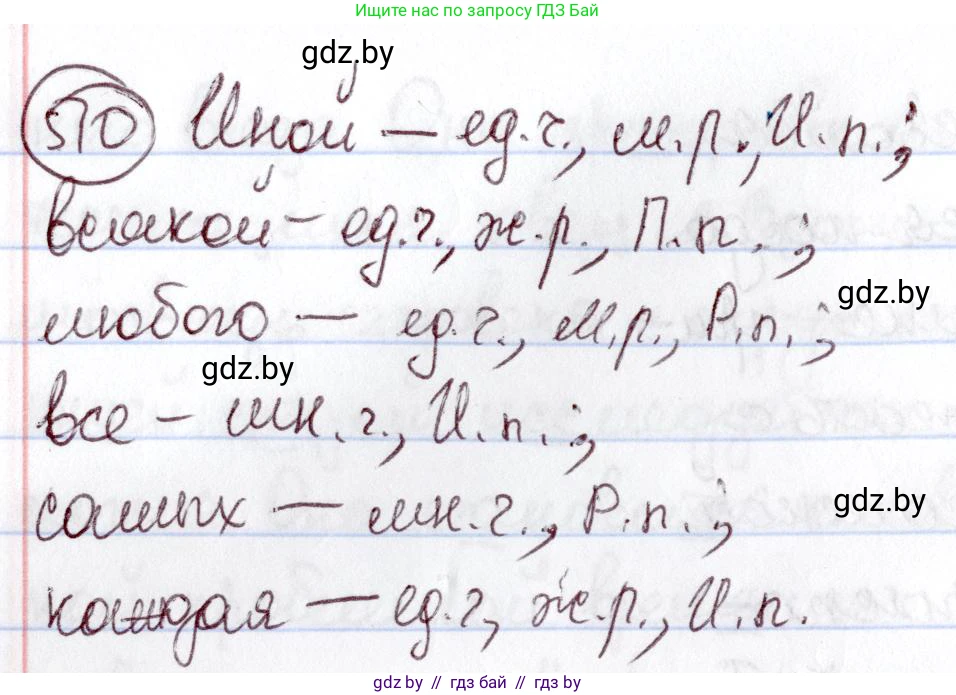 Ищите нас по запросу ГДЗ Бай
gdz.by
510 Иной — ед.ч., м.р., И.п.;
всякой — ед.ч., ж.р., П.п.;
gdz.by
любого — ед.ч., м.р., Р.п.;
gdz.by
все — мн.ч., И.п.;
gdz.by
самых — мн.ч., Р.п.;
каждая — ед.ч, ж.р., И.п.
gdz.by // гдз бай // gdz.by